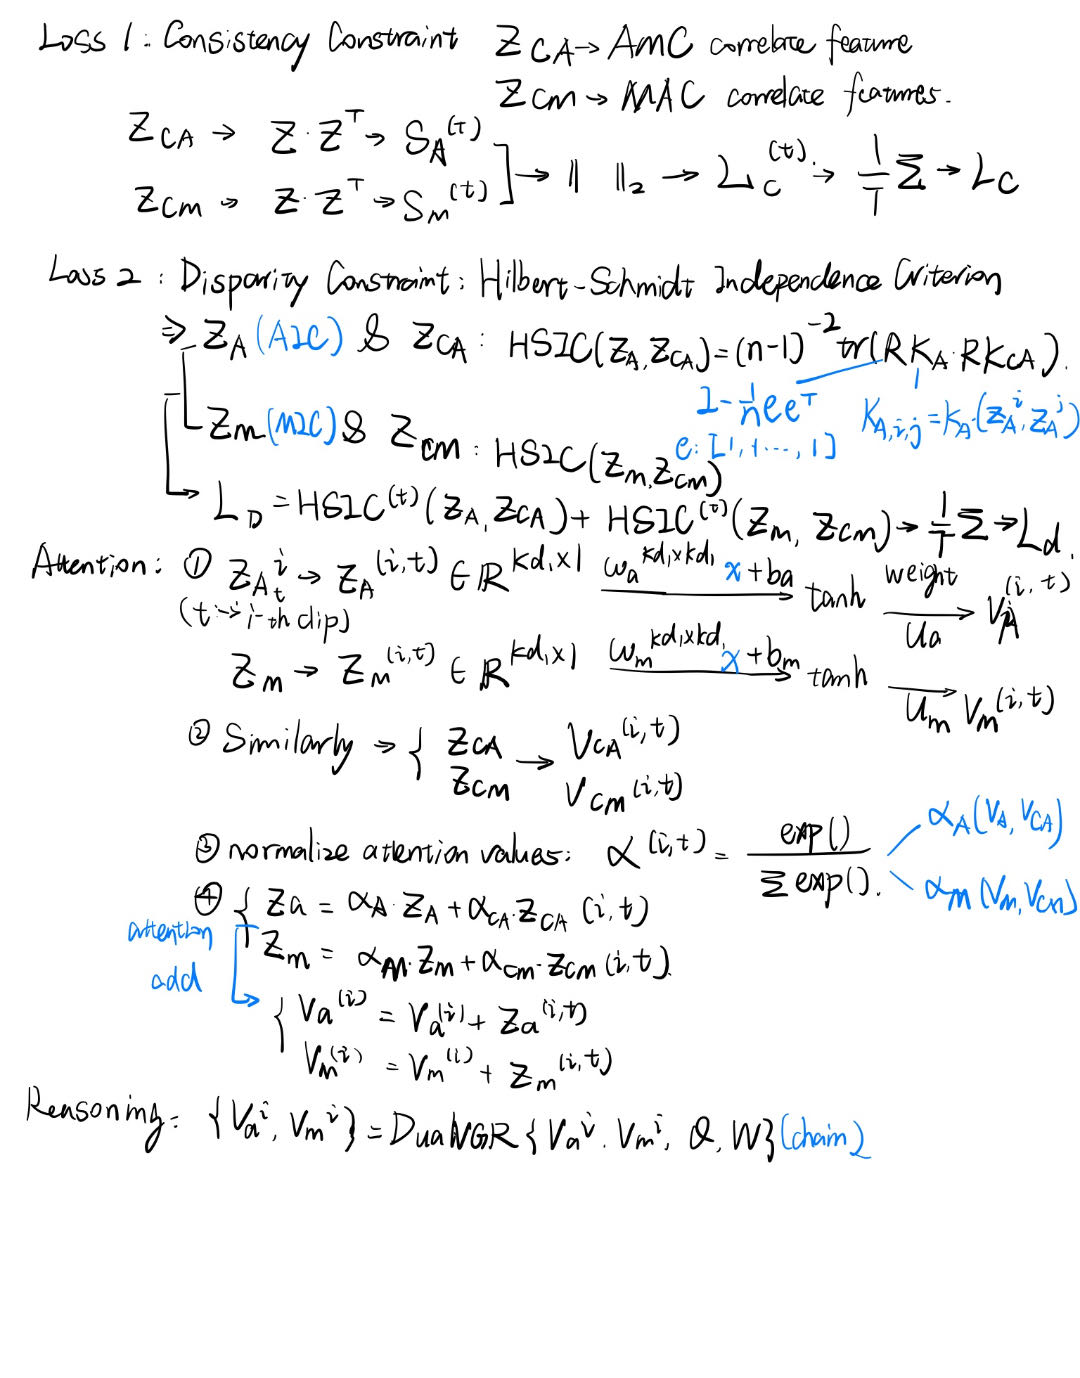 Loss 1: Consistency Constraint Z_CA → AMC correlate feature
Z_CM → MAC correlate features.
Z_CA → Z·Z^T → S_A^(t)
Z_CM → Z·Z^T → S_M^(t) ] → || ||_2 → L_C^(t) → 1/T Σ → L_C
Loss 2: Disparity Constraint: Hilbert-Schmidt Independence Criterion
⇒ Z_A (AIC) & Z_CA: HSIC(Z_A, Z_CA) = (n-1)^-2 tr(R K_A · R K_CA).
I - 1/n ee^T K_A,i,j = K_A·(Z_A^i, Z_A^j)
Z_M (MIC) & Z_CM: HSIC(Z_M, Z_CM)
e: [1, 1 ..., 1]
→ L_D = HSIC^(t)(Z_A, Z_CA) + HSIC^(t)(Z_M, Z_CM) → 1/T Σ → L_d.
Attention: ① Z_A_t^i → Z_A^(i,t) ∈ R^(kd_1×1) ω_a^(kd_1×kd_1) x + b_a → tanh weight U_a → V_A^(i,t)
(t → i-th clip)
Z_M → Z_M^(i,t) ∈ R^(kd_1×1) ω_m^(kd_1×kd_1) x + b_m → tanh U_m → V_m^(i,t)
② Similarly → { Z_CA → V_CA^(i,t)
Z_CM V_CM^(i,t)
③ normalize attention values: α^(i,t) = exp() / Σ exp(). α_A(V_A, V_CA)
α_M(V_M, V_CM)
④ { Z_a = α_A · Z_A + α_CA · Z_CA (i,t)
Z_m = α_M · Z_M + α_CM · Z_CM (i,t).
attention
add
{ V_a^(i) = V_a^(i) + Z_a^(i,t)
V_m^(i) = V_m^(i) + Z_m^(i,t)
Reasoning: {V_a^i, V_m^i} = DualVGR {V_a^i, V_m^i, Q, W} (chain)